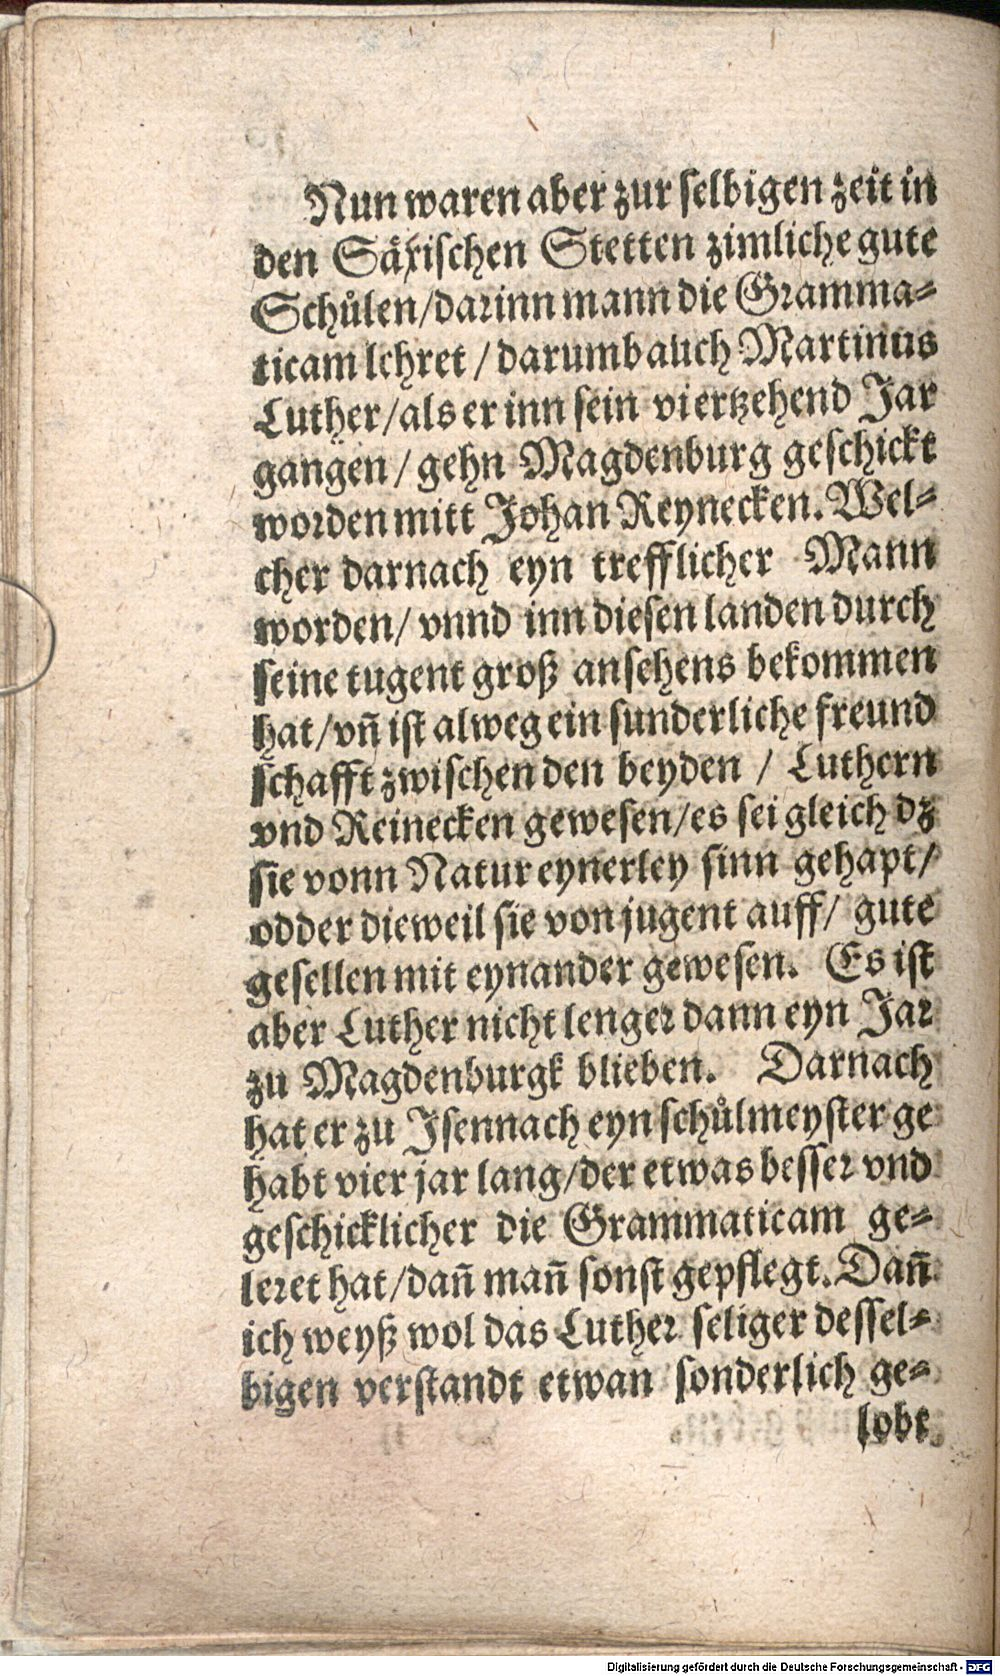 Nun waren aber zur selbigen zeit in
den Säxischen Stetten zimliche gute
Schůlen/darinn mann die Gramma⸗
ticam lehret / darumb auch Martinus
Luther/als er inn sein viertzehend Jar
gangen / gehn Magdenburg geschickt
worden mitt Johan Reynecken. Wel⸗
cher darnach eyn trefflicher Mann
worden/ vnnd inn diesen landen durch
seine tugent groß ansehens bekommen
hat/vñ ist alweg ein sunderliche freund
schafft zwischen den beyden / Luthern
vnd Reinecken gewesen/es sei gleich dz
sie vonn Natur eynerley sinn gehapt/
odder dieweil sie von jugent auff/ gute
gesellen mit eynander gewesen. Es ist
aber Luther nicht lenger dann eyn Jar
zu Magdenburgk blieben. Darnach
hat er zu Isennach eyn schůlmeyster ge
habt vier jar lang/der etwas besser vnd
geschicklicher die Grammaticam ge⸗
leret hat/dañ mañ sonst gepflegt. Dañ
ich weyß wol das Luther seliger dessel⸗
bigen verstandt etwan sonderlich ge⸗
lobt
Digitalisierung gefördert durch die Deutsche Forschungsgemeinschaft - DFG